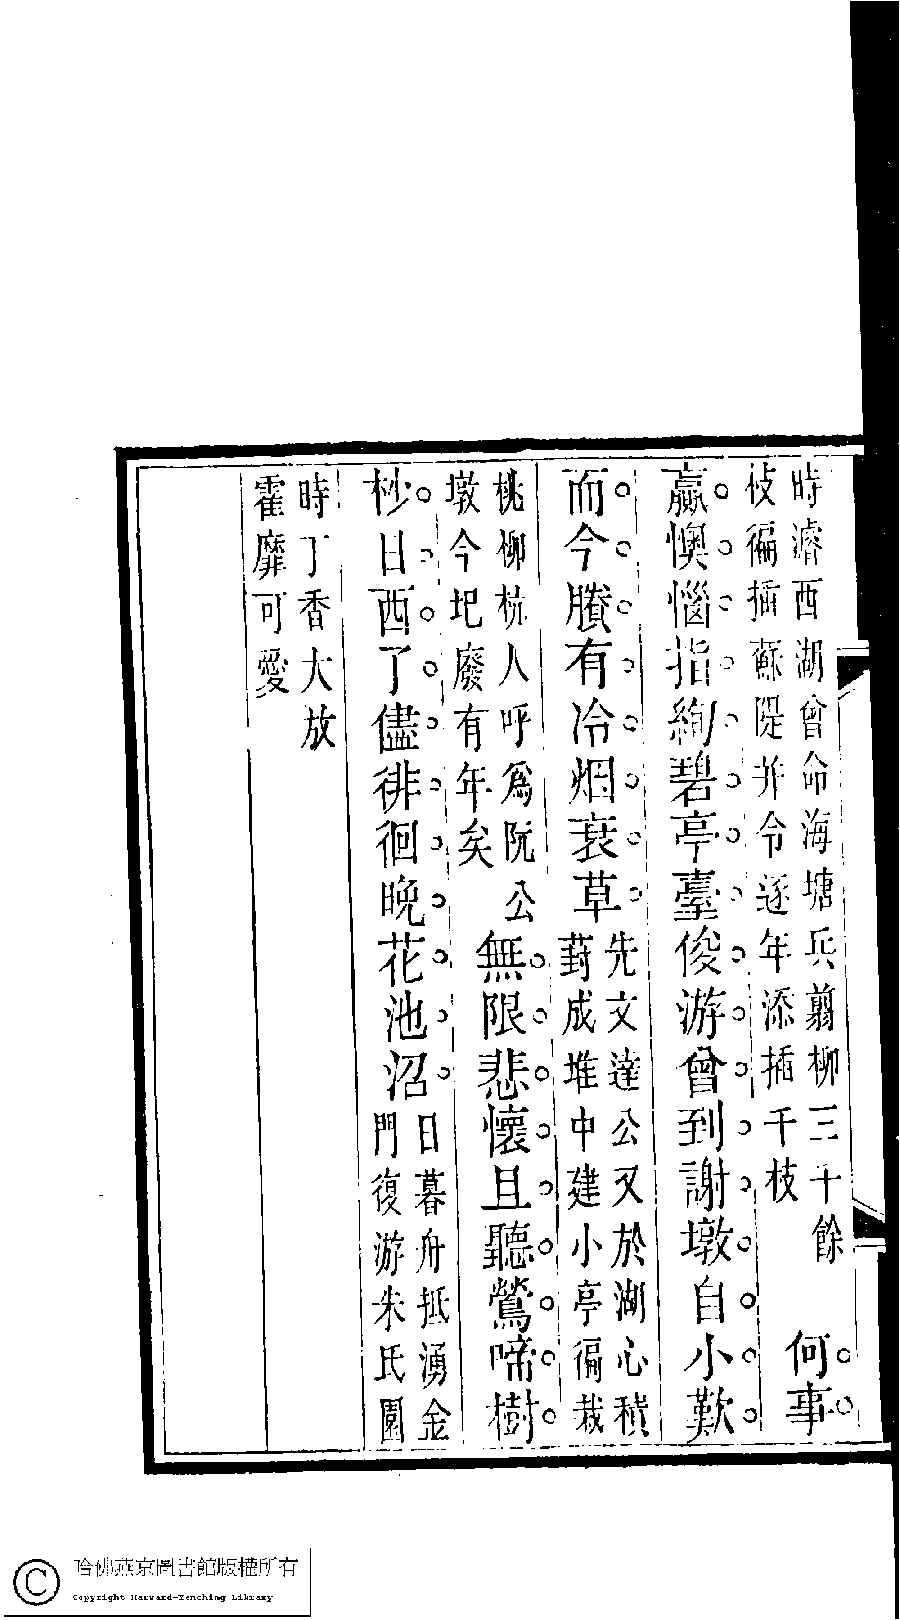 時濬西湖曾命海塘兵翦柳三千餘
枝徧插蘇隄并令逐年添插千枝
何事
贏懊惱指絢碧亭臺俊游曾到謝墩自小歎
而今賸有冷烟衰草
先文達公又於湖心積
葑成堆中建小亭徧栽
桃柳杭人呼爲阮公
墩今圯廢有年矣
無限悲懷且聽鶯啼樹
杪日西了儘徘徊晩花池沼
日暮舟抵湧金
門復游朱氏園
時丁香大放
霍靡可愛
哈佛燕京圖書館版權所有
Copyright Harvard-Yenching Library